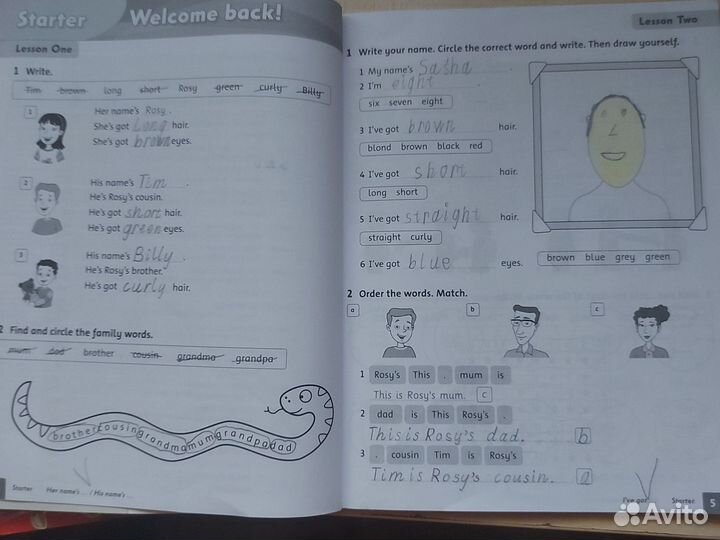 Starter Welcome back!
Lesson One
1 Write.
Tim brown long short Rosy green curly Billy
1
Her name's Rosy.
She's got long hair.
She's got brown eyes.
2
His name's Tim.
He's Rosy's cousin.
He's got short hair.
He's got green eyes.
3
His name's Billy.
He's Rosy's brother.
He's got curly hair.
2 Find and circle the family words.
mum dad brother cousin grandma grandpa
brothercousingrandmamumgrandpadad
Starter Her name's ... / His name's ...
Lesson Two
1 Write your name. Circle the correct word and write. Then draw yourself.
1 My name's Sasha
2 I'm eight
six seven eight
3 I've got brown hair.
blond brown black red
4 I've got short hair.
long short
5 I've got straight hair.
straight curly
6 I've got blue eyes.
brown blue grey green
2 Order the words. Match.
a b c
1 Rosy's This . mum is
This is Rosy's mum. c
2 dad is This Rosy's .
This is Rosy's dad. b
3 . cousin Tim is Rosy's
Tim is Rosy's cousin. a
I've got Starter 5
Avito